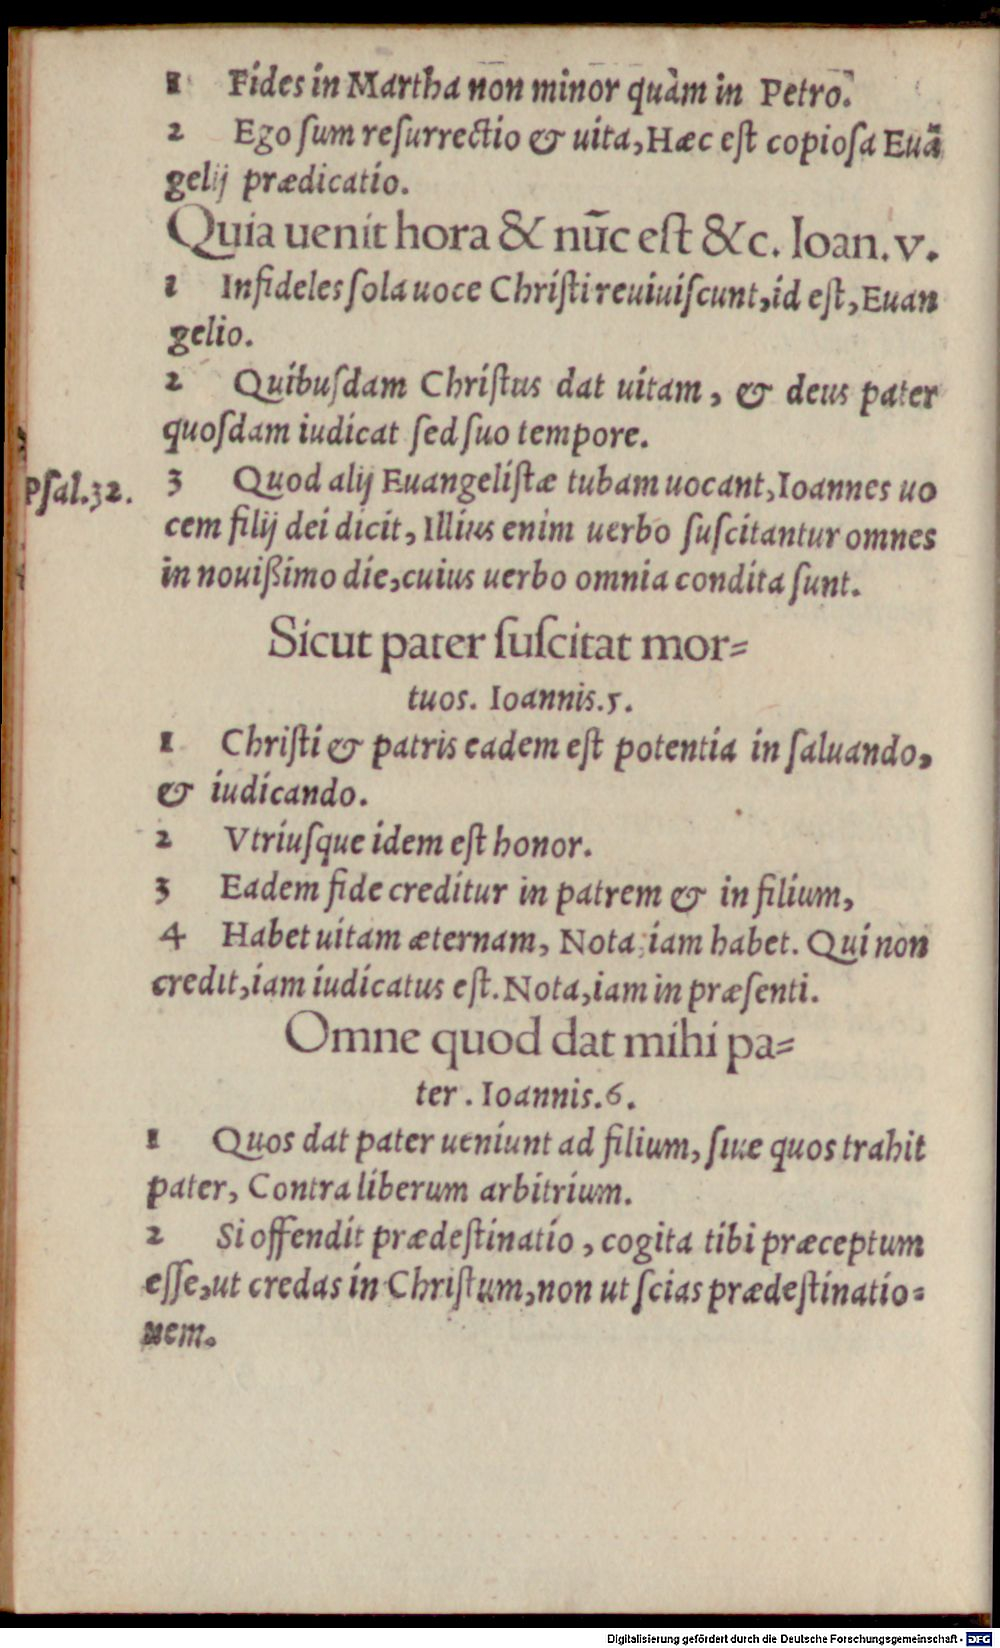 1 Fides in Martha non minor quàm in Petro.
2 Ego ſum reſurrectio & uita, Hæc eſt copioſa Euã
gelij prædicatio.
Quia uenit hora & nũc eſt &c. Ioan. v.
1 Infideles ſola uoce Chriſti reuiuiſcunt, id eſt, Euan
gelio.
2 Quibuſdam Chriſtus dat uitam, & deus pater
quoſdam iudicat ſed ſuo tempore.
Pſal. 32.
3 Quod alij Euangeliſtæ tubam uocant, Ioannes uo
cem filij dei dicit, Illius enim uerbo ſuſcitantur omnes
in nouißimo die, cuius uerbo omnia condita ſunt.
Sicut pater ſuſcitat mor=
tuos. Ioannis. 5.
1 Chriſti & patris eadem eſt potentia in ſaluando,
& iudicando.
2 Vtriuſque idem eſt honor.
3 Eadem fide creditur in patrem & in filium,
4 Habet uitam æternam, Nota, iam habet. Qui non
credit, iam iudicatus eſt. Nota, iam in præſenti.
Omne quod dat mihi pa=
ter. Ioannis. 6.
1 Quos dat pater ueniunt ad filium, ſiue quos trahit
pater, Contra liberum arbitrium.
2 Si offendit prædeſtinatio, cogita tibi præceptum
eſſe, ut credas in Chriſtum, non ut ſcias prædeſtinatio=
nem.
Digitalisierung gefördert durch die Deutsche Forschungsgemeinschaft - DFG